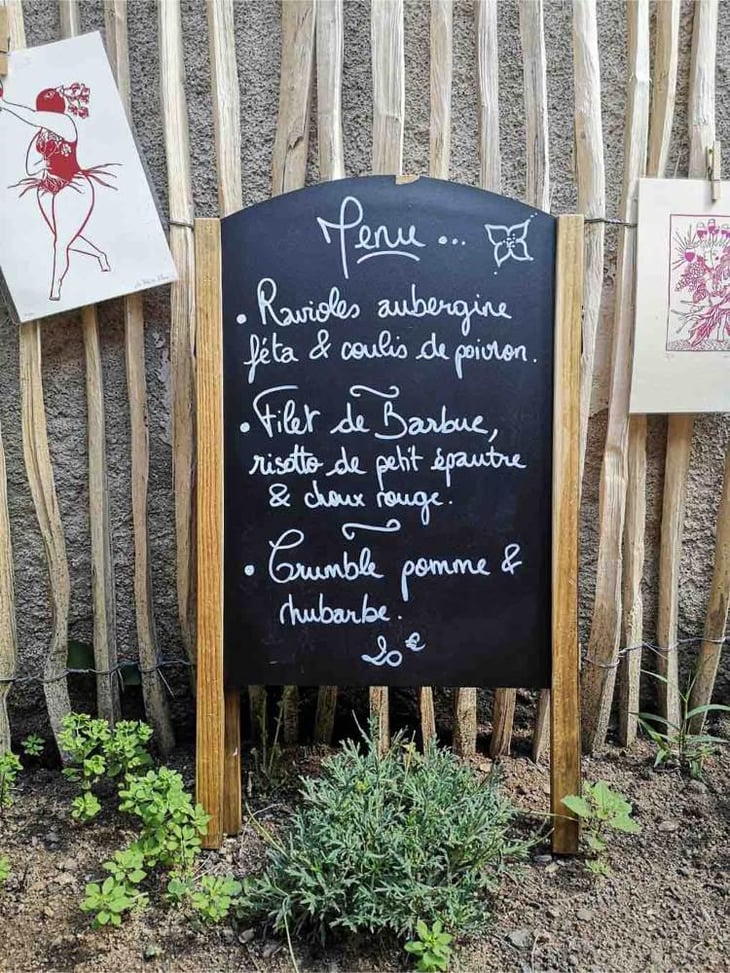 Menu...
• Ravioles aubergine
féta & coulis de poivron.
• Filet de Barbue,
risotto de petit épautre
& choux rouge.
• Crumble pomme &
rhubarbe.
20€